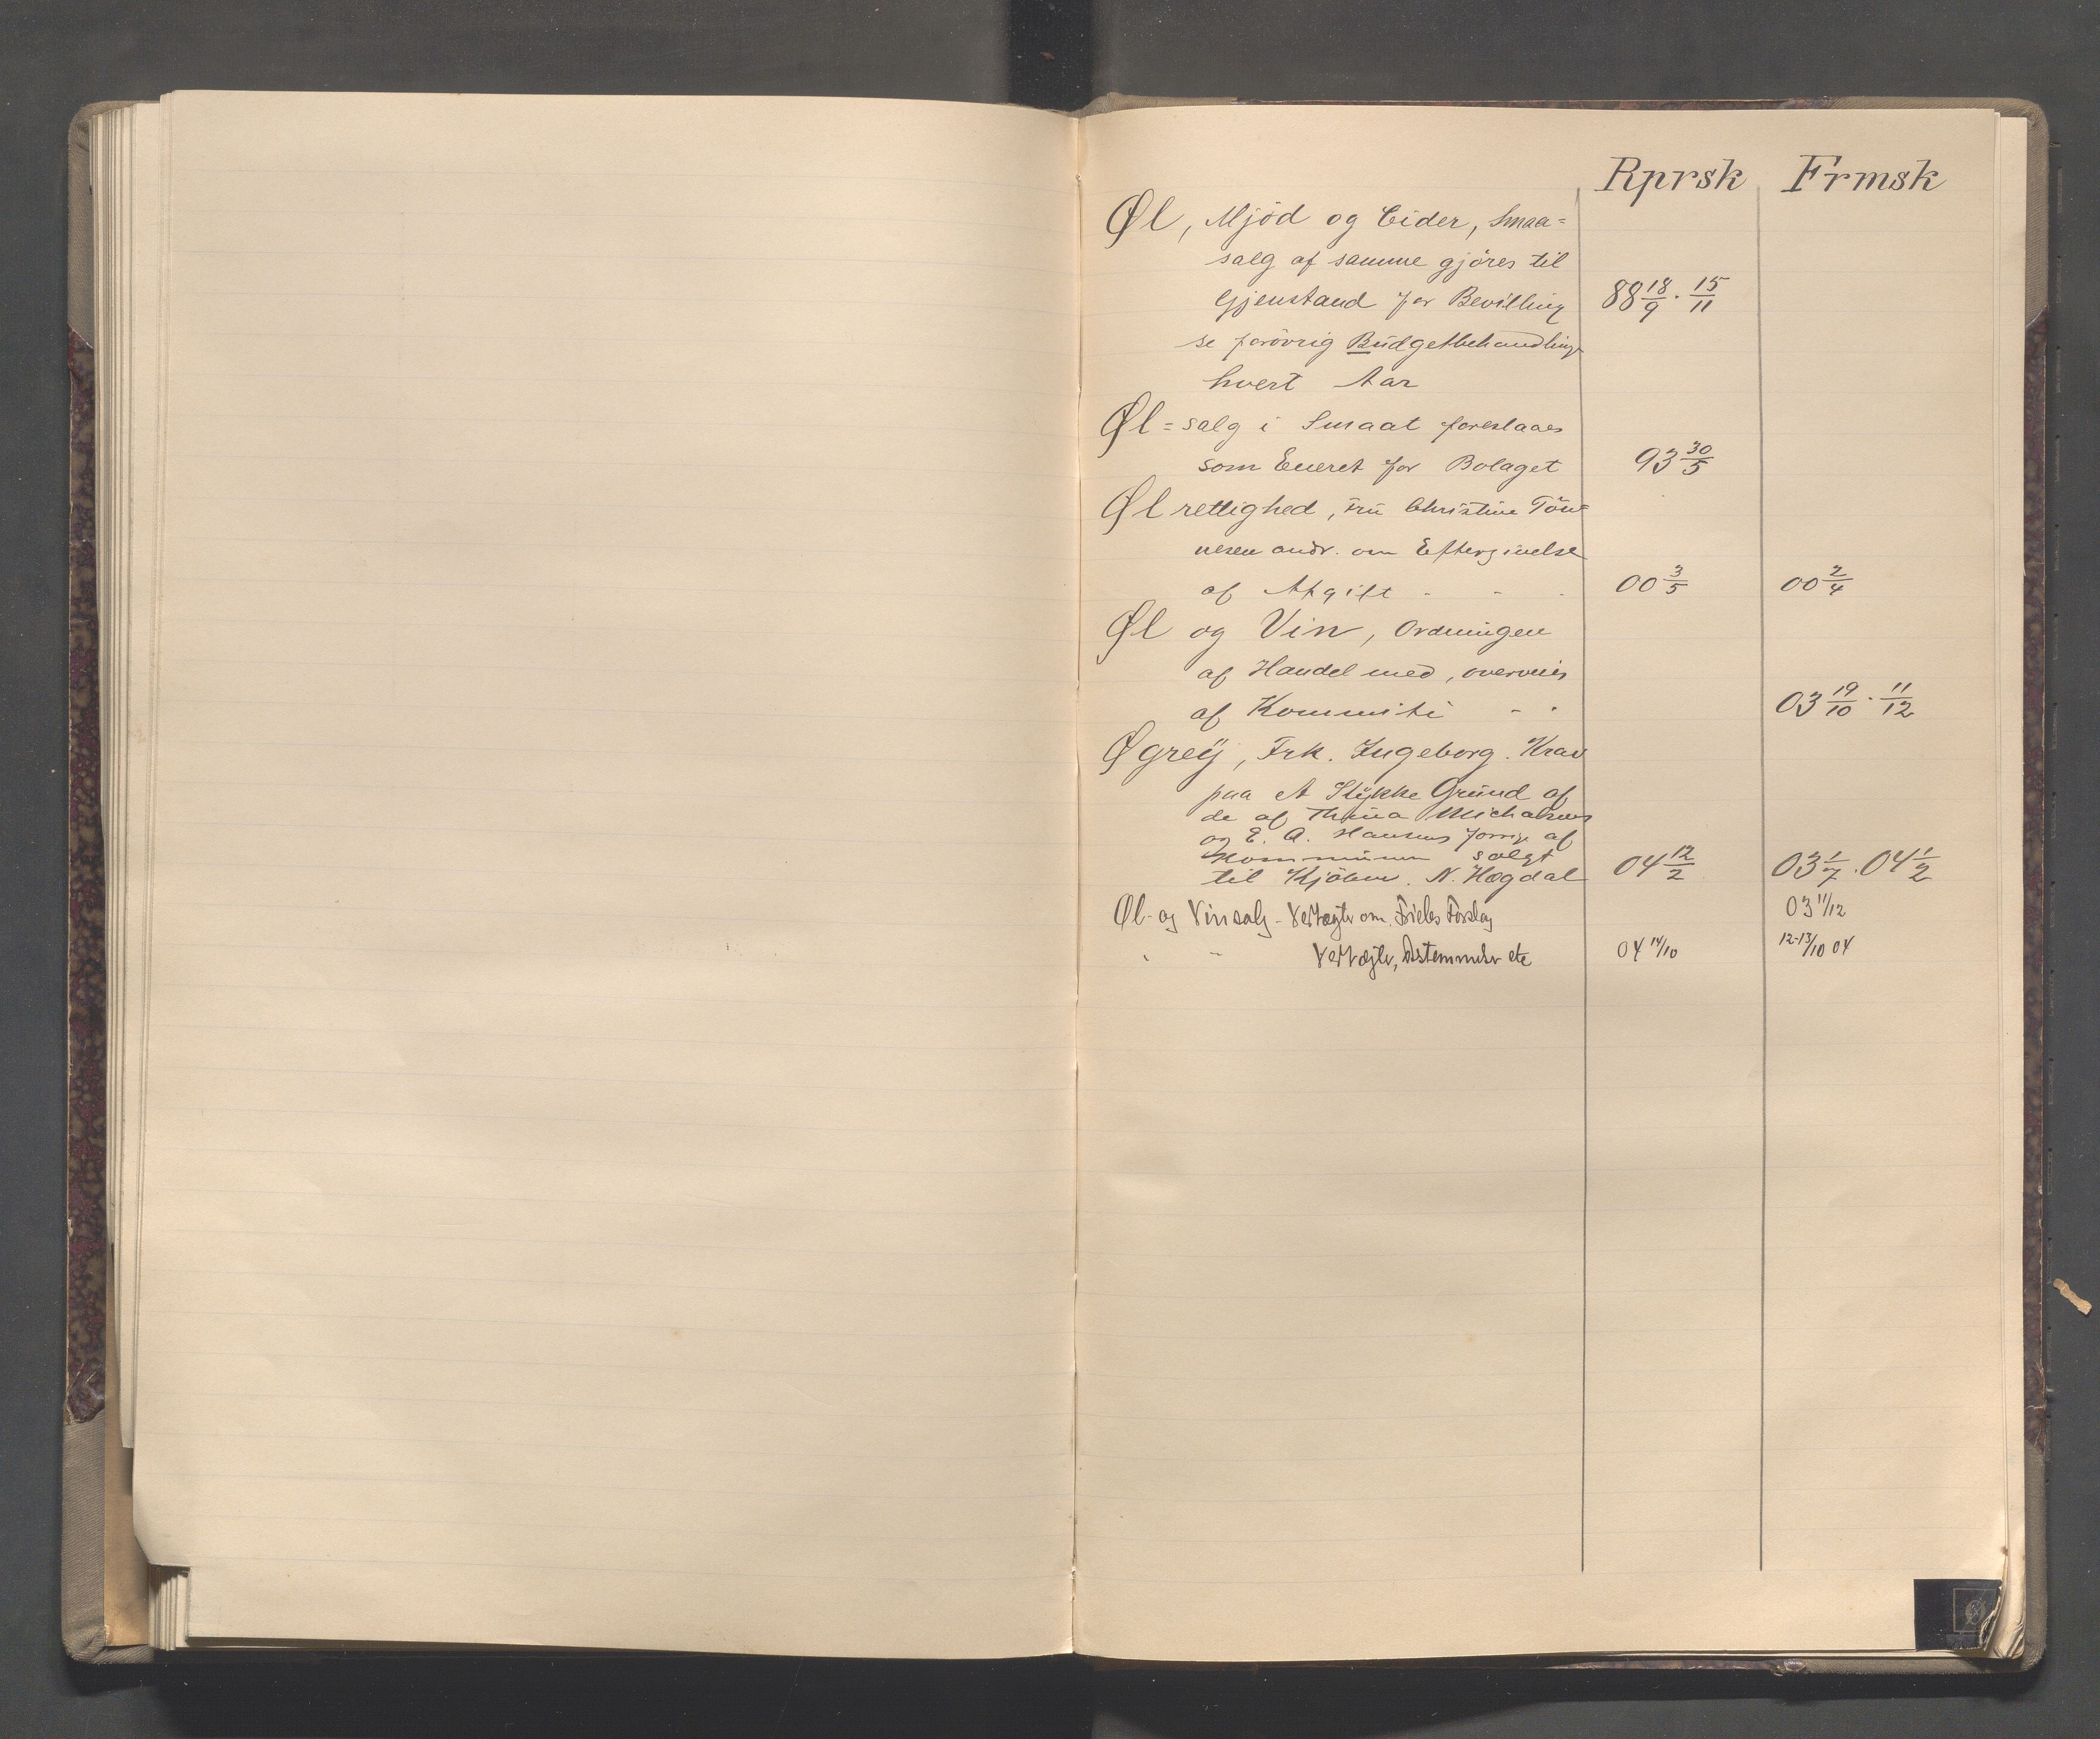 Rprsk Frmsk
Øl, Mjöd og Cider, Smaa=
salg af samme gjöres til
Gjenstand for Bevilling 88 18/9 · 15/11
se forövrig Budgetbehandling
hvert Aar
Øl=salg i Smaat foreslaaes
som Eneret for Bolaget 93 30/5
Ølrettighed, Fru Christine Tön=
nesen andr. om Eftergivelse
af Afgift - - - 00 3/5 00 2/4
Øl og Vin, Ordningen
af Handel med, overveies
af Kommite - - 03 19/10 · 11/12
Øgreÿ, Frk. Ingeborg. Krav
paa et Stykke Grund af
de af Thina Michalsens
og E. A. Hansens forrige af
Kommunen solgt
til Kjöbm. N. Hogdal 04 12/2 03 1/7 . 04 1/2
Øl- og Vinsalg - Vedtægter om Frieles Forslag 03 11/12
" " Vedtægter, Afstemmelser etc 04 14/10 12-13/10 04